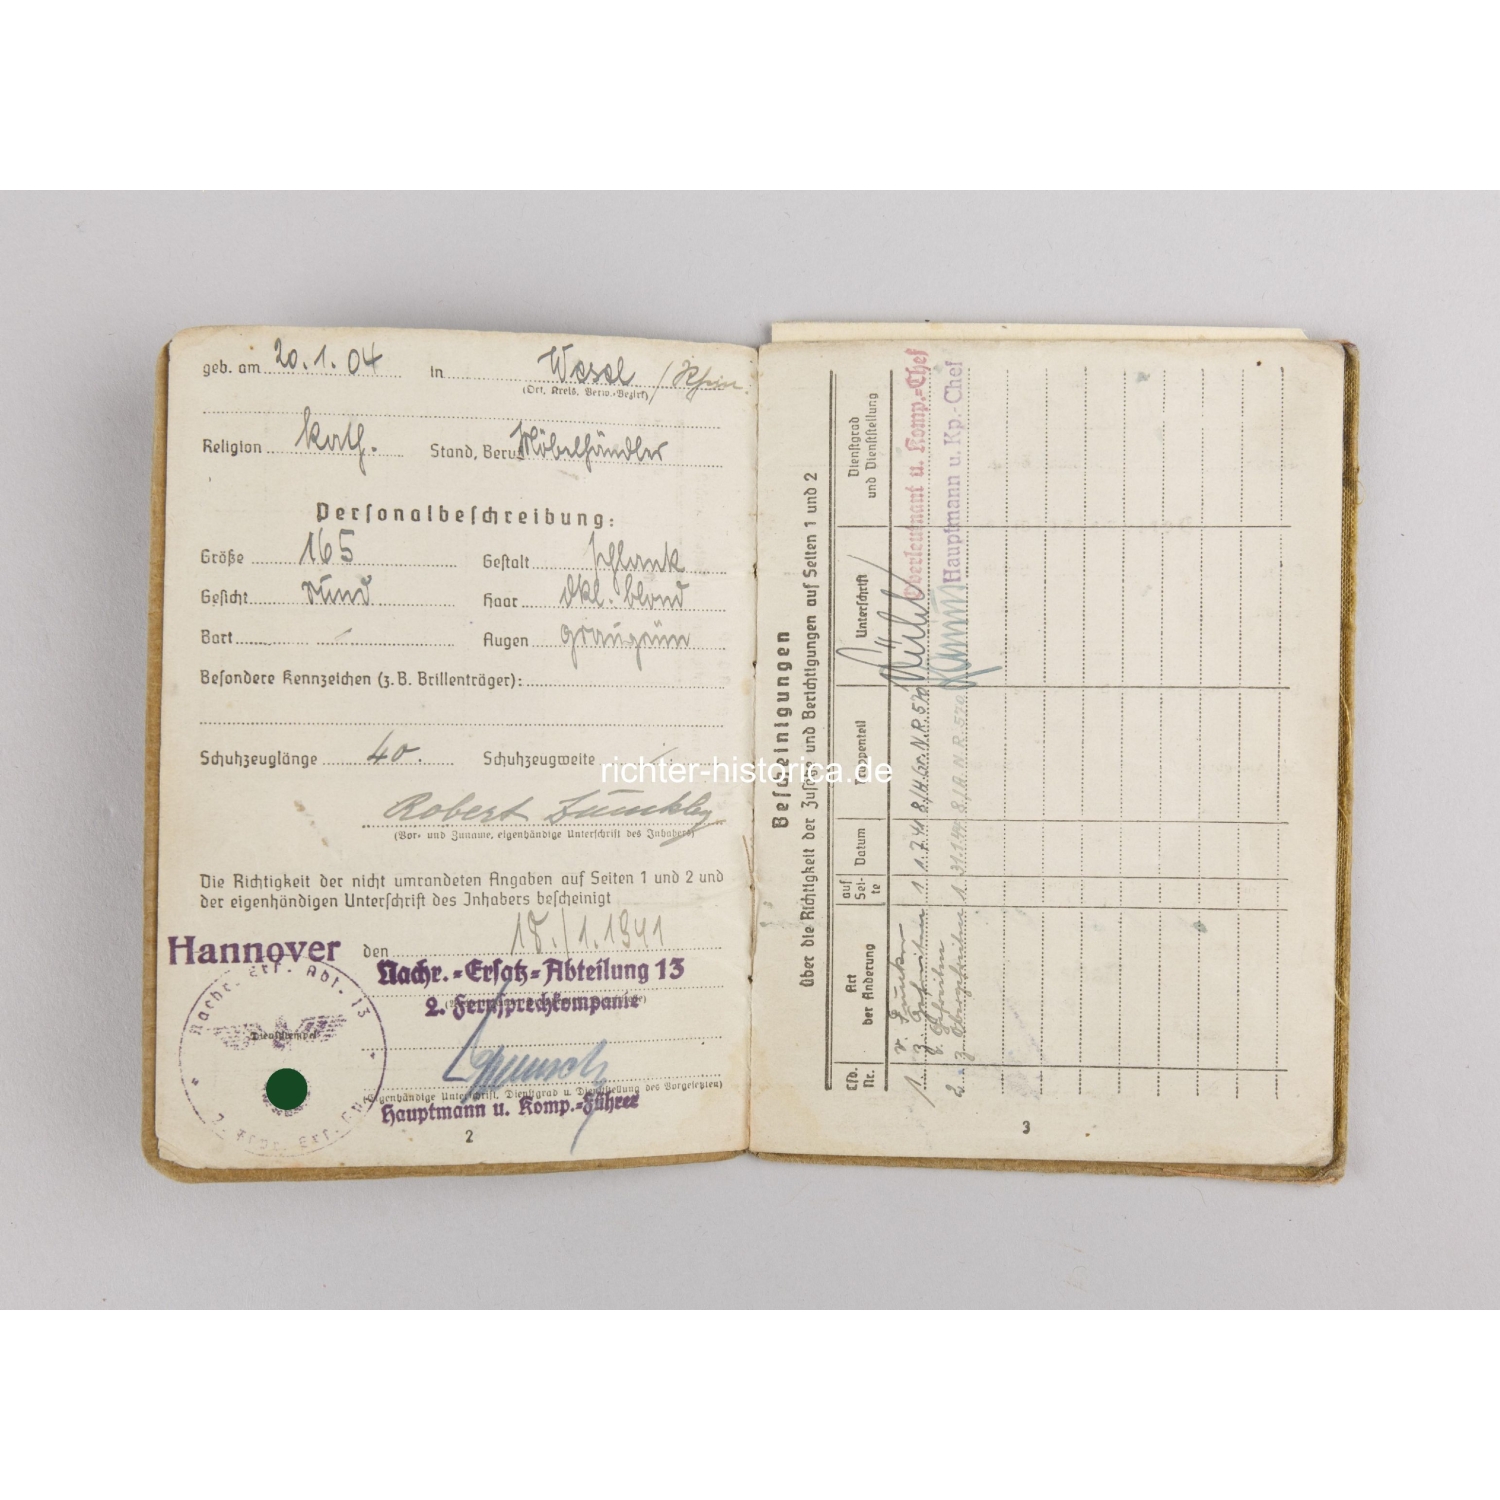 geb. am 20.1.04 in Wesel / Rhein
(Ort, Kreis, Verw.-Bezirk)
Religion kath. Stand, Beruf Möbelhändler
Personalbeschreibung:
Größe 165 Gestalt schlank
Gesicht rund Haar dkl. blond
Bart — Augen graugrün
Besondere Kennzeichen (z. B. Brillenträger):
Schuhzeuglänge 40. Schuhzeugweite
Robert
(Vor- und Zuname, eigenhändige Unterschrift des Inhabers)
Die Richtigkeit der nicht umrandeten Angaben auf Seiten 1 und 2 und
der eigenhändigen Unterschrift des Inhabers bescheinigt
Hannover den 18./1.1941
Nachr.-Ersatz-Abteilung 13
2. Fernsprechkompanie
Nachr.- Ers. Abt. 13
Dienststempel
(Eigenhändige Unterschrift, Dienstgrad u. Dienststellung des Vorgesetzten)
Hauptmann u. Komp.-Führer
2
Bescheinigungen
über die Richtigkeit der Zusätze und Berichtigungen auf Seiten 1 und 2
Lfd. Nr. Art der Änderung auf Seite Datum Truppenteil Unterschrift Dienstgrad und Dienststellung
1. v. Funker z. Gefreiten 1 1.7.41 Oberleutnant u. Komp.-Chef
2. v. Gefreiten z. Obergefreiten 1 Hauptmann u. Kp.-Chef
3
richter-historica.de